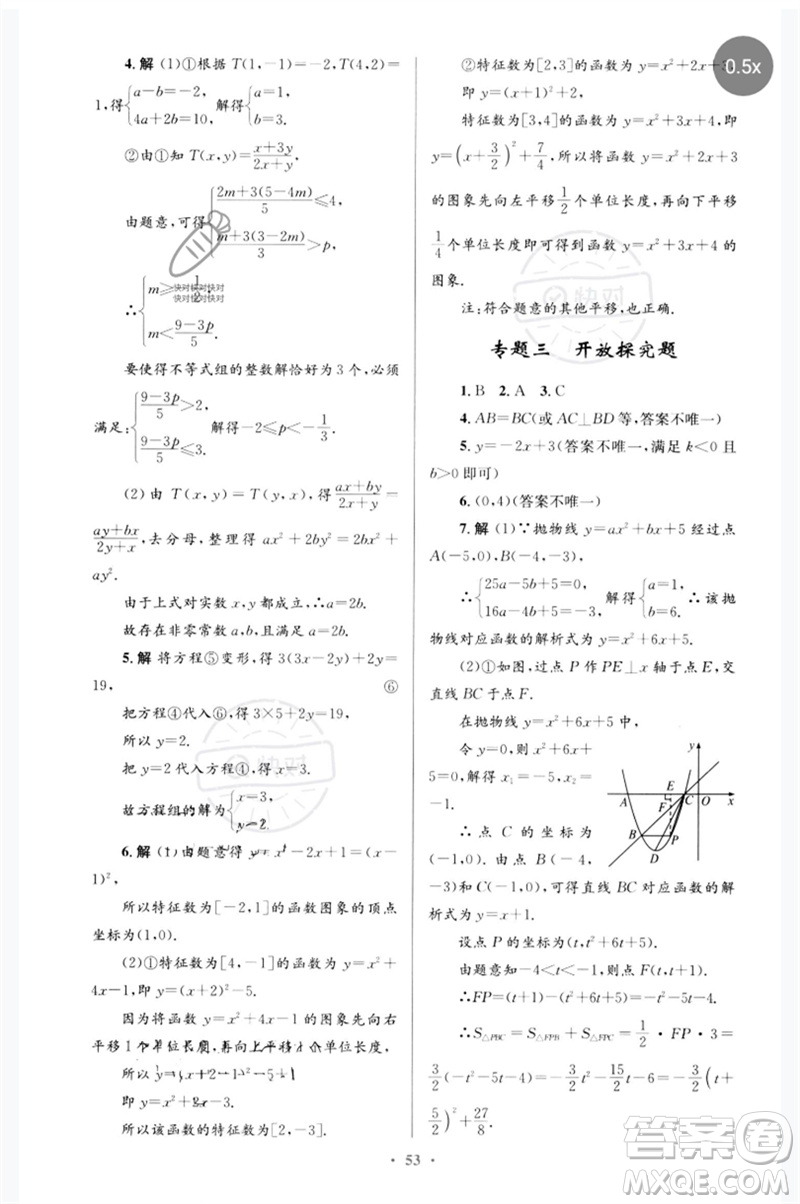 4.解 (1)①根据 T(1,-1)=-2,T(4,2)=
1,得{a-b=-2, 4a+2b=10, 解得{a=1, b=3.
②由①知 T(x,y)=(x+3y)/(2x+y).
由题意,可得{(2m+3(5-4m))/5≤4, (m+3(3-2m))/3>p,
∴{m≥-1/2, m<(9-3p)/5.
要使得不等式组的整数解恰好为3个,必须
满足:{(9-3p)/5>2, (9-3p)/5≤3. 解得-2≤p<-1/3.
(2)由 T(x,y)=T(y,x),得(ax+by)/(2x+y)=
(ay+bx)/(2y+x),去分母,整理得 ax²+2by²=2bx²+
ay².
由于上式对实数 x,y 都成立,∴a=2b.
故存在非零常数 a,b,且满足 a=2b.
5.解 将方程⑤变形,得3(3x-2y)+2y=
19, ⑥
把方程④代入⑥,得3×5+2y=19,
所以 y=2.
把 y=2代入方程④,得 x=3.
故方程组的解为{x=3, y=2.
6.解 (1)由题意得 y=x²-2x+1=(x-
1)²,
所以特征数为[-2,1]的函数图象的顶点
坐标为(1,0).
(2)①特征数为[4,-1]的函数为 y=x²+
4x-1,即 y=(x+2)²-5.
因为将函数 y=x²+4x-1的图象先向右
平移1个单位长度,再向上平移1个单位长度,
所以
即 y=x²+2x-3.
所以该函数的特征数为[2,-3].
②特征数为[2,3]的函数为 y=x²+2x+3,
即 y=(x+1)²+2,
特征数为[3,4]的函数为 y=x²+3x+4,即
y=(x+3/2)²+7/4,所以将函数 y=x²+2x+3
的图象先向左平移1/2个单位长度,再向下平移
1/4个单位长度即可得到函数 y=x²+3x+4的
图象.
注:符合题意的其他平移,也正确.
专题三 开放探究题
1.B 2.A 3.C
4.AB=BC(或AC⊥BD等,答案不唯一)
5.y=-2x+3(答案不唯一,满足 k<0且
b>0即可)
6.(0,4)(答案不唯一)
7.解 (1)∵抛物线 y=ax²+bx+5经过点
A(-5,0),B(-4,-3),
∴{25a-5b+5=0, 16a-4b+5=-3, 解得{a=1, b=6. ∴该抛
物线对应函数的解析式为 y=x²+6x+5.
(2)①如图,过点 P 作 PE⊥x 轴于点 E,交
直线 BC 于点 F.
在抛物线 y=x²+6x+5中,
令 y=0,则 x²+6x+
5=0,解得 x₁=-5,x₂=
-1.
∴点 C 的坐标为
(-1,0).由点 B(-4,
-3)和C(-1,0),可得直线 BC 对应函数的解
析式为 y=x+1.
设点 P 的坐标为(t,t²+6t+5).
由题意知-4<t<-1,则点 F(t,t+1).
∴FP=(t+1)-(t²+6t+5)=-t²-5t-4.
∴S△PBC=S△FPB+S△FPC=1/2·FP·3=
3/2(-t²-5t-4)=-3/2t²-15/2t-6=-3/2(t+
5/2)²+27/8.
y
E
A
C
O
x
F
B
P
D
· 53 ·
0.5x
快对快对快对
快对快对快对
快对
快对
答案圈
MXQE.COM